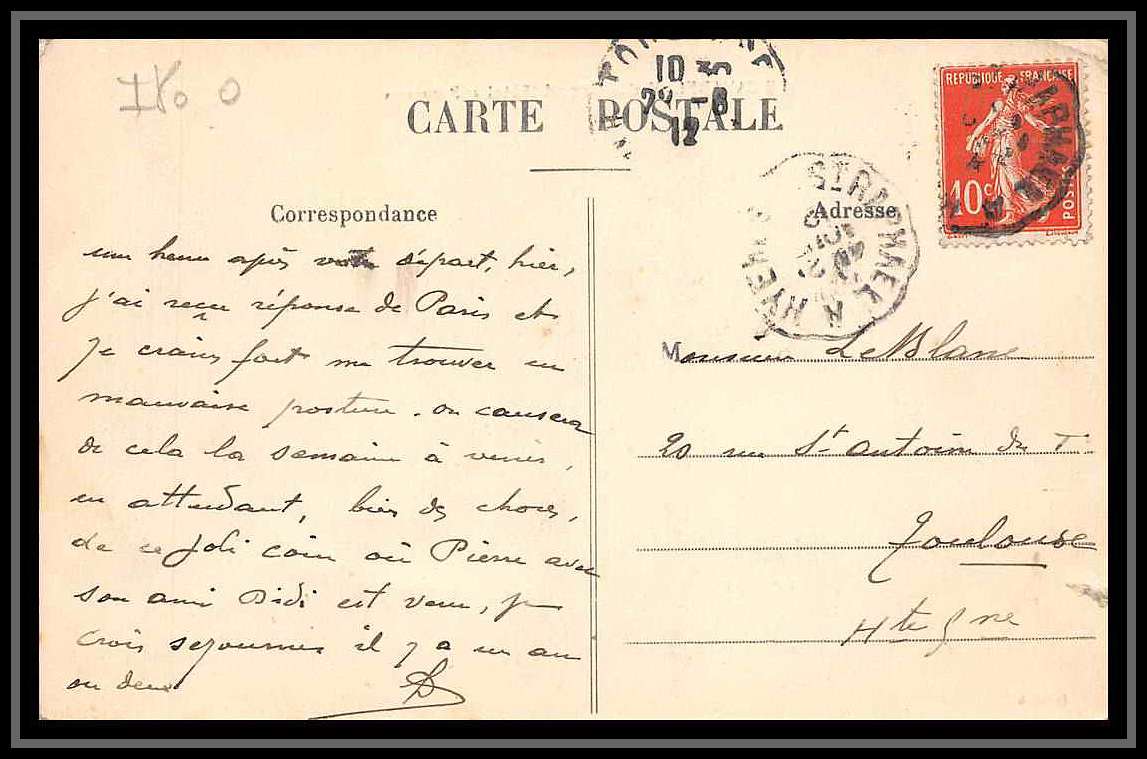 CARTE POSTALE
10 35
29 -8
12
REPUBLIQUE FRANÇAISE
10c
POSTES
St RAPHAEL A HYERES
Correspondance
Adresse
une heure après votre départ, hier,
j'ai reçu réponse de Paris et
je crains fort me trouver en
mauvaise posture. on causera
de cela la semaine à venir,
en attendant, bien des choses,
de ce joli coin où Pierre avec
son ami Didi est venu, je
crois séjourner il y a un an
ou deux
Monsieur LeBlanc
20 rue St Antoine du T.
Toulouse
Hte Gne